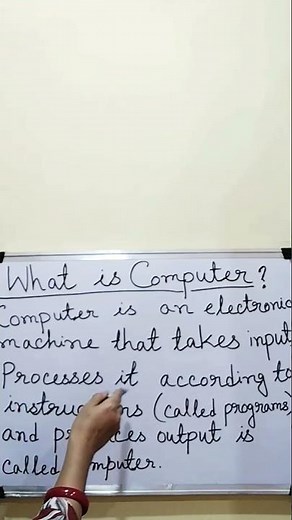 What is Computer?
Computer is an electronic
machine that takes input,
Processes it according to
instructions (called programs)
and produces output is
called computer.